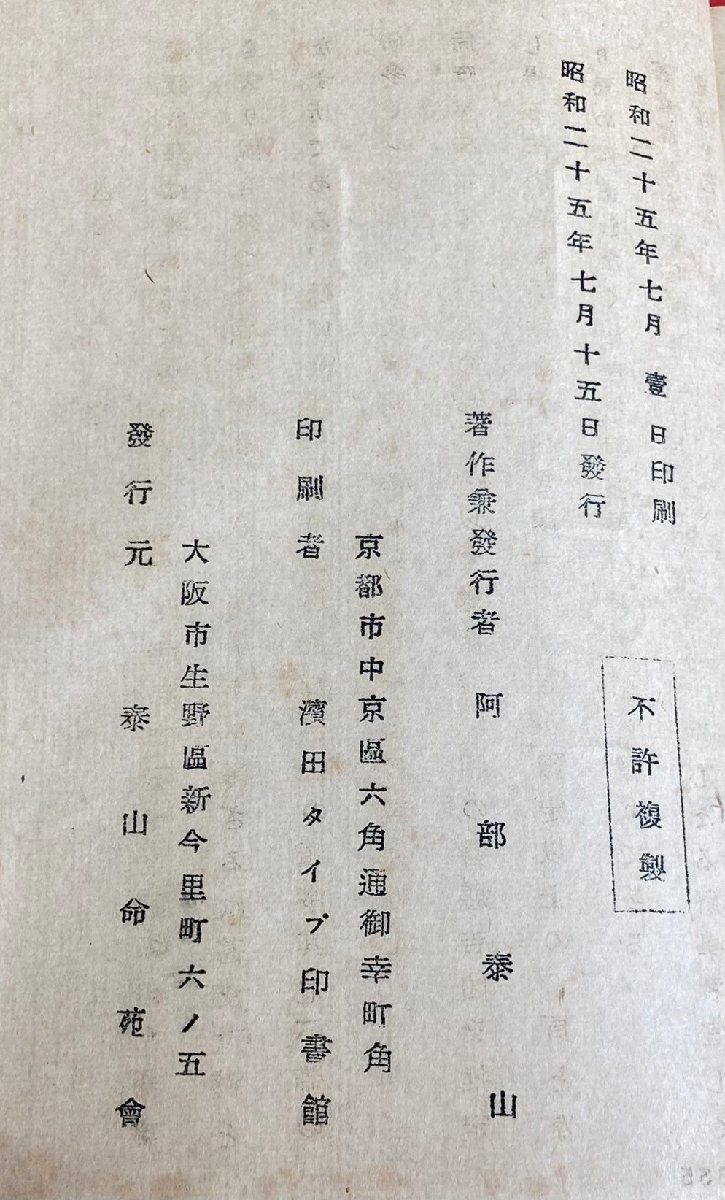 昭和二十五年七月 壹日印刷
昭和二十五年七月十五日發行
不許複製
著作兼發行者 阿部泰山
京都市中京區六角通御幸町角
印刷者 濱田タイプ印書館
大阪市生野區新今里町六ノ五
發行元 泰山命苑會